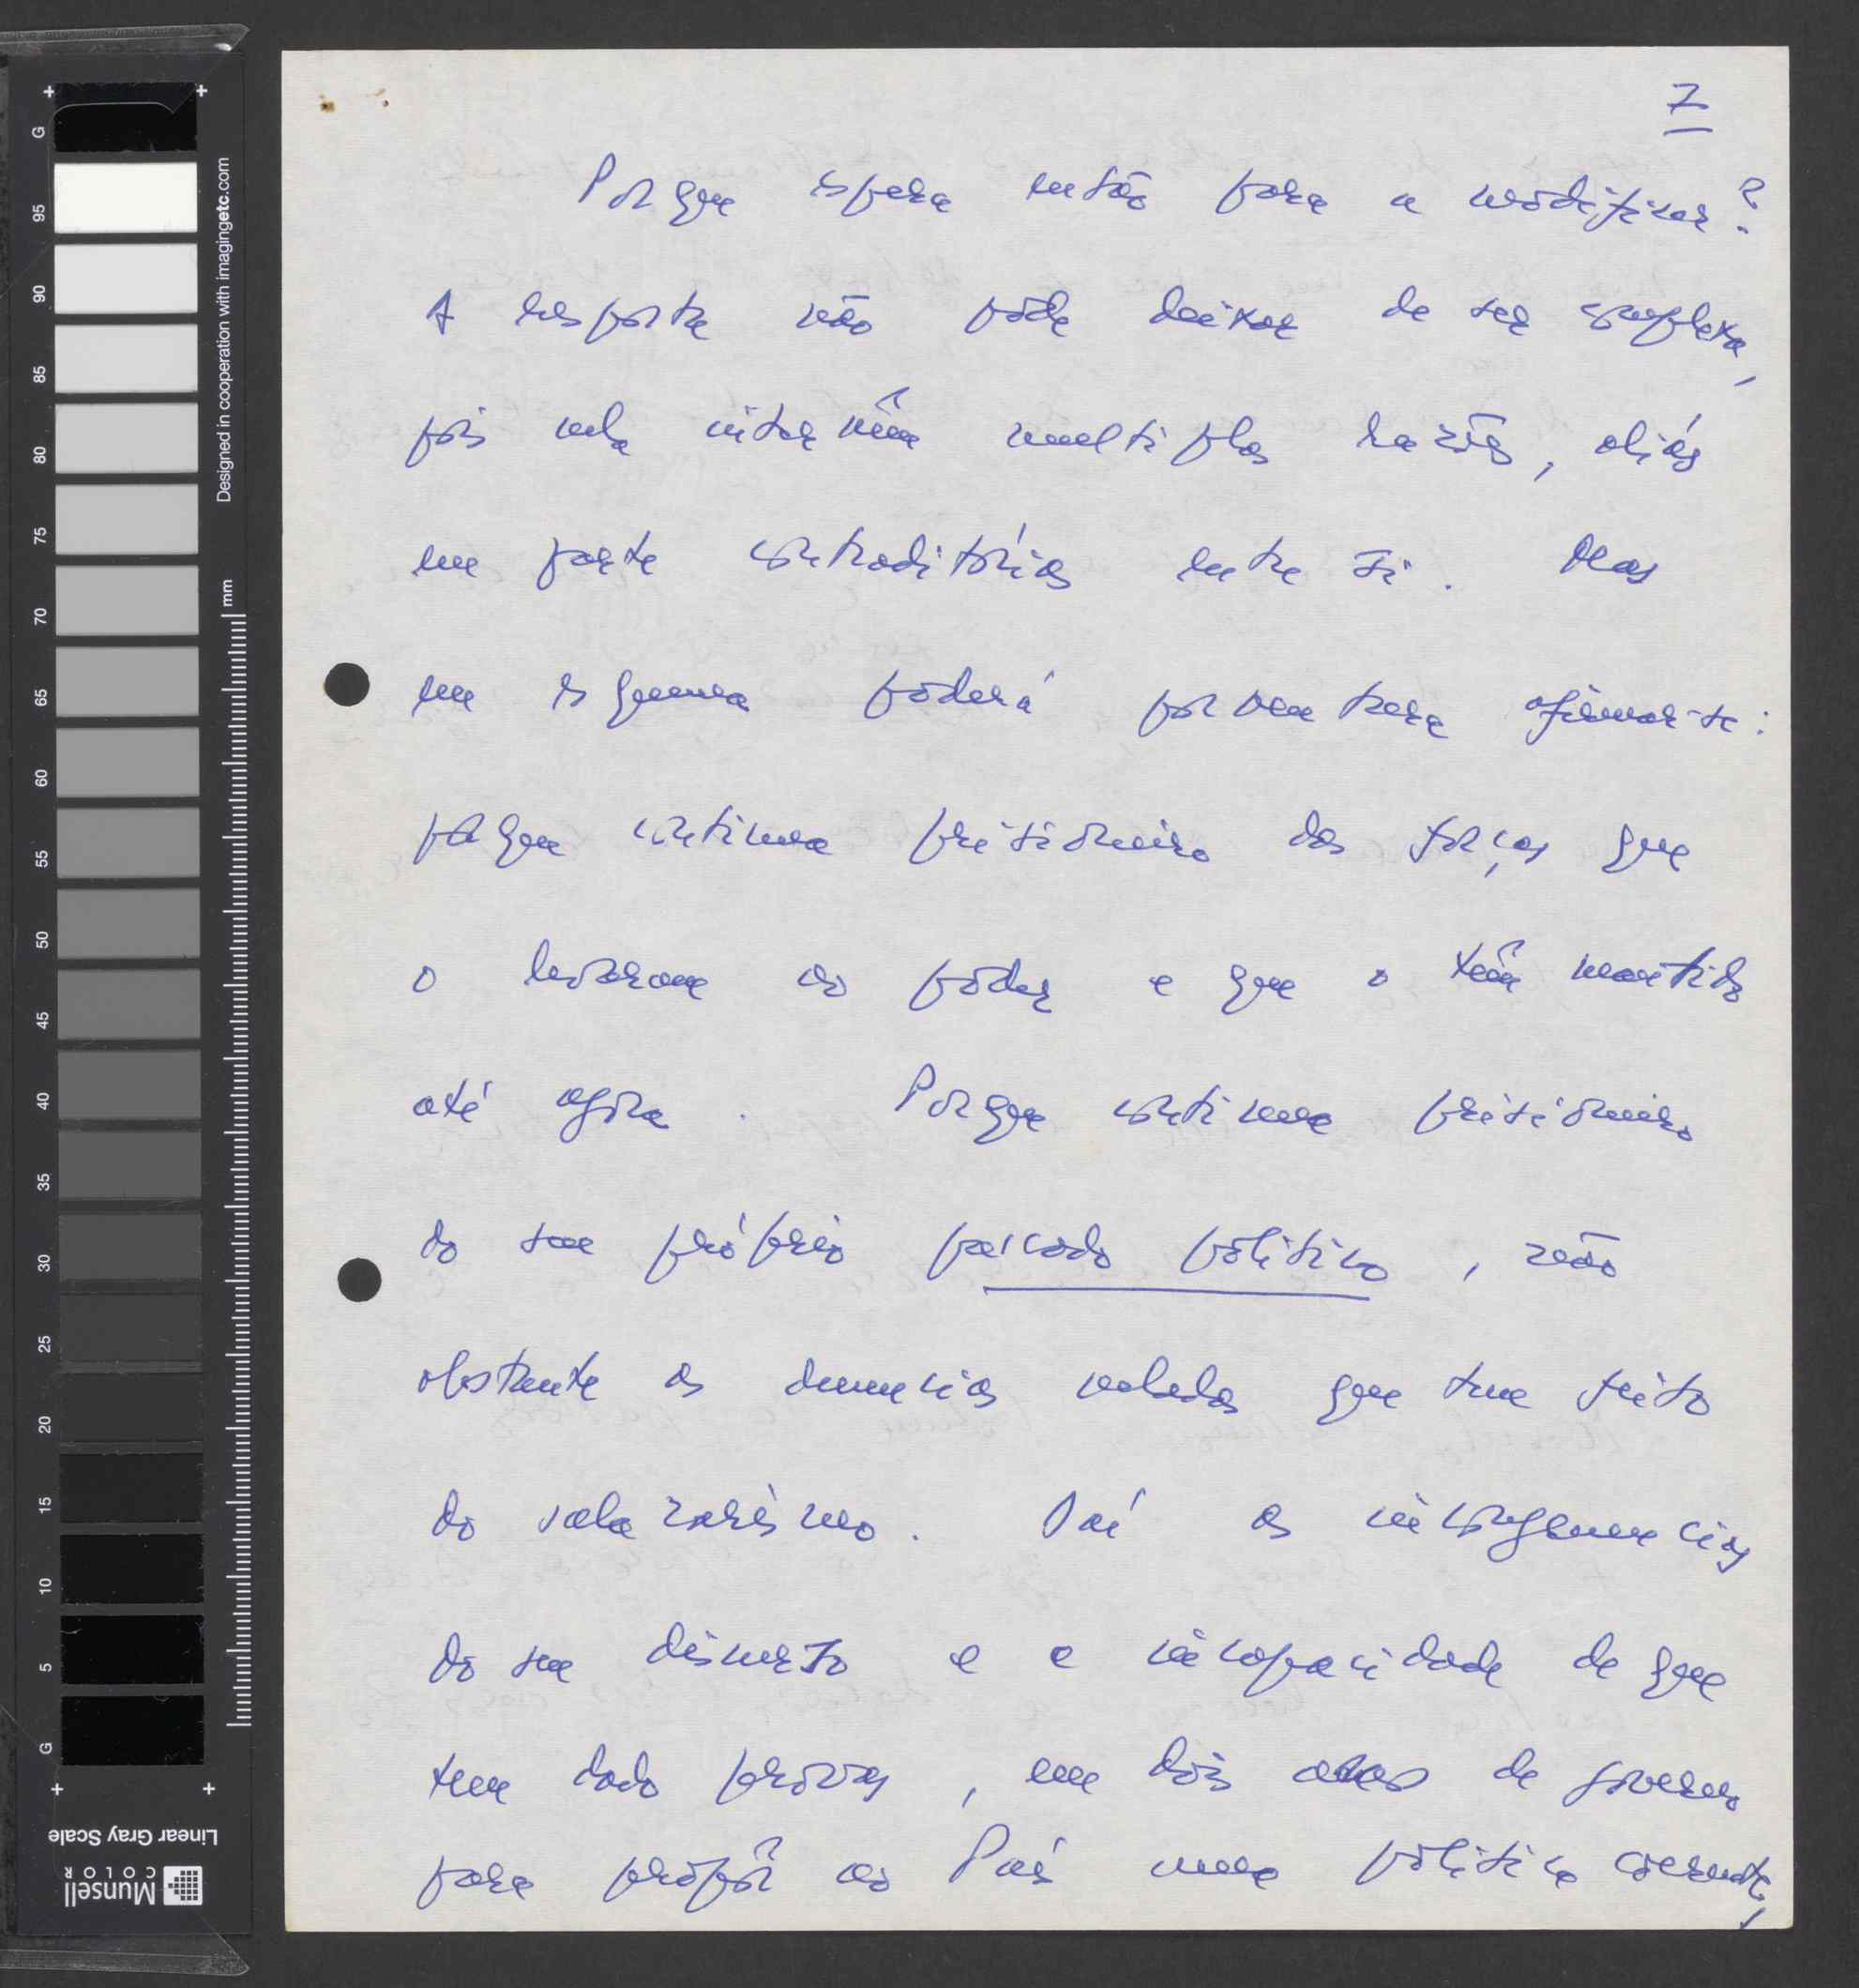 7
Porque espera então para a modificar?
A resposta não pode deixar de ser complexa,
pois nela intervêm multiplas razões, aliás
em parte contraditórias entre si. Mas
em esquema poderá porventura afirmar-se:
porque continua prisioneiro das forças que
o levaram ao poder e que o têm mantido
até agora. Porque continua prisioneiro
do seu próprio passado politico, não
obstante as denuncias veladas que tem feito
do salazarismo. Daí as incongruencias
do seu discurso e a incapacidade de que
tem dado provas, em dois anos de governo
para propôr ao País uma politica coerente,
Designed in cooperation with imagingetc.com
mm
G 95 90 85 80 75 70 65 60 55 50 45 40 35 30 25 20 15 10 5 G
Linear Gray Scale
Munsell
COLOR